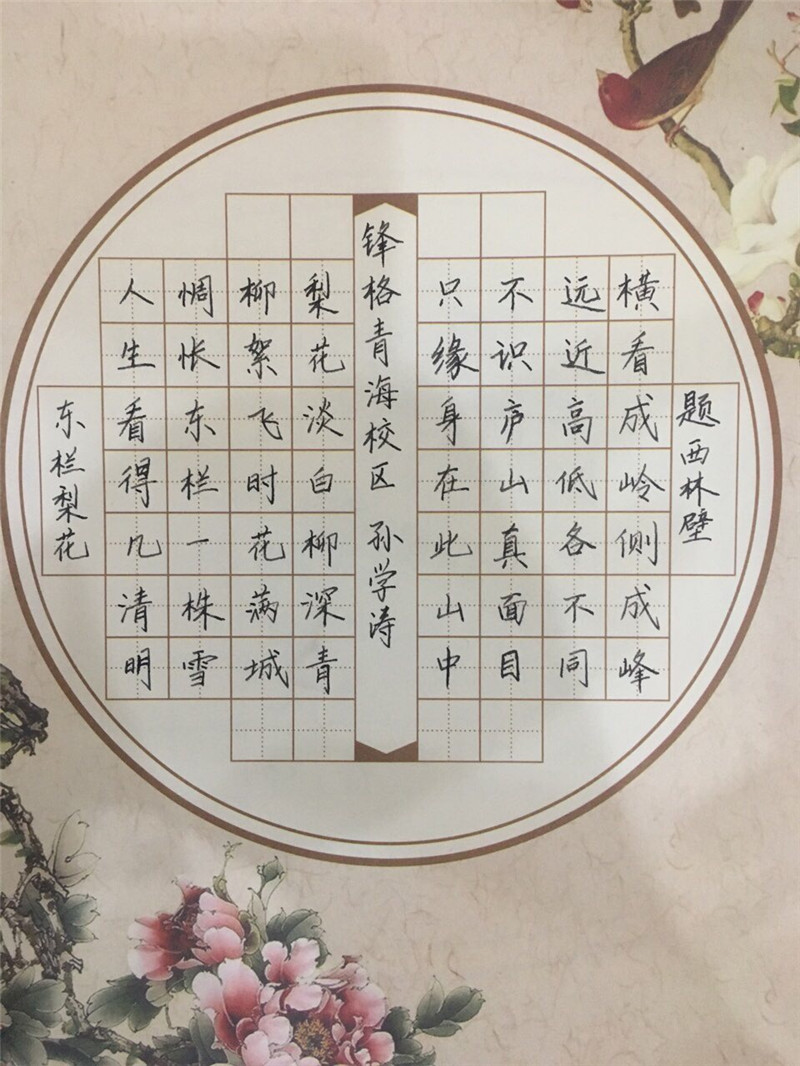 题西林壁
横看成岭侧成峰
远近高低各不同
不识庐山真面目
只缘身在此山中
锋格青海校区 孙学涛
梨花淡白柳深青
柳絮飞时花满城
惆怅东栏一株雪
人生看得几清明
东栏梨花